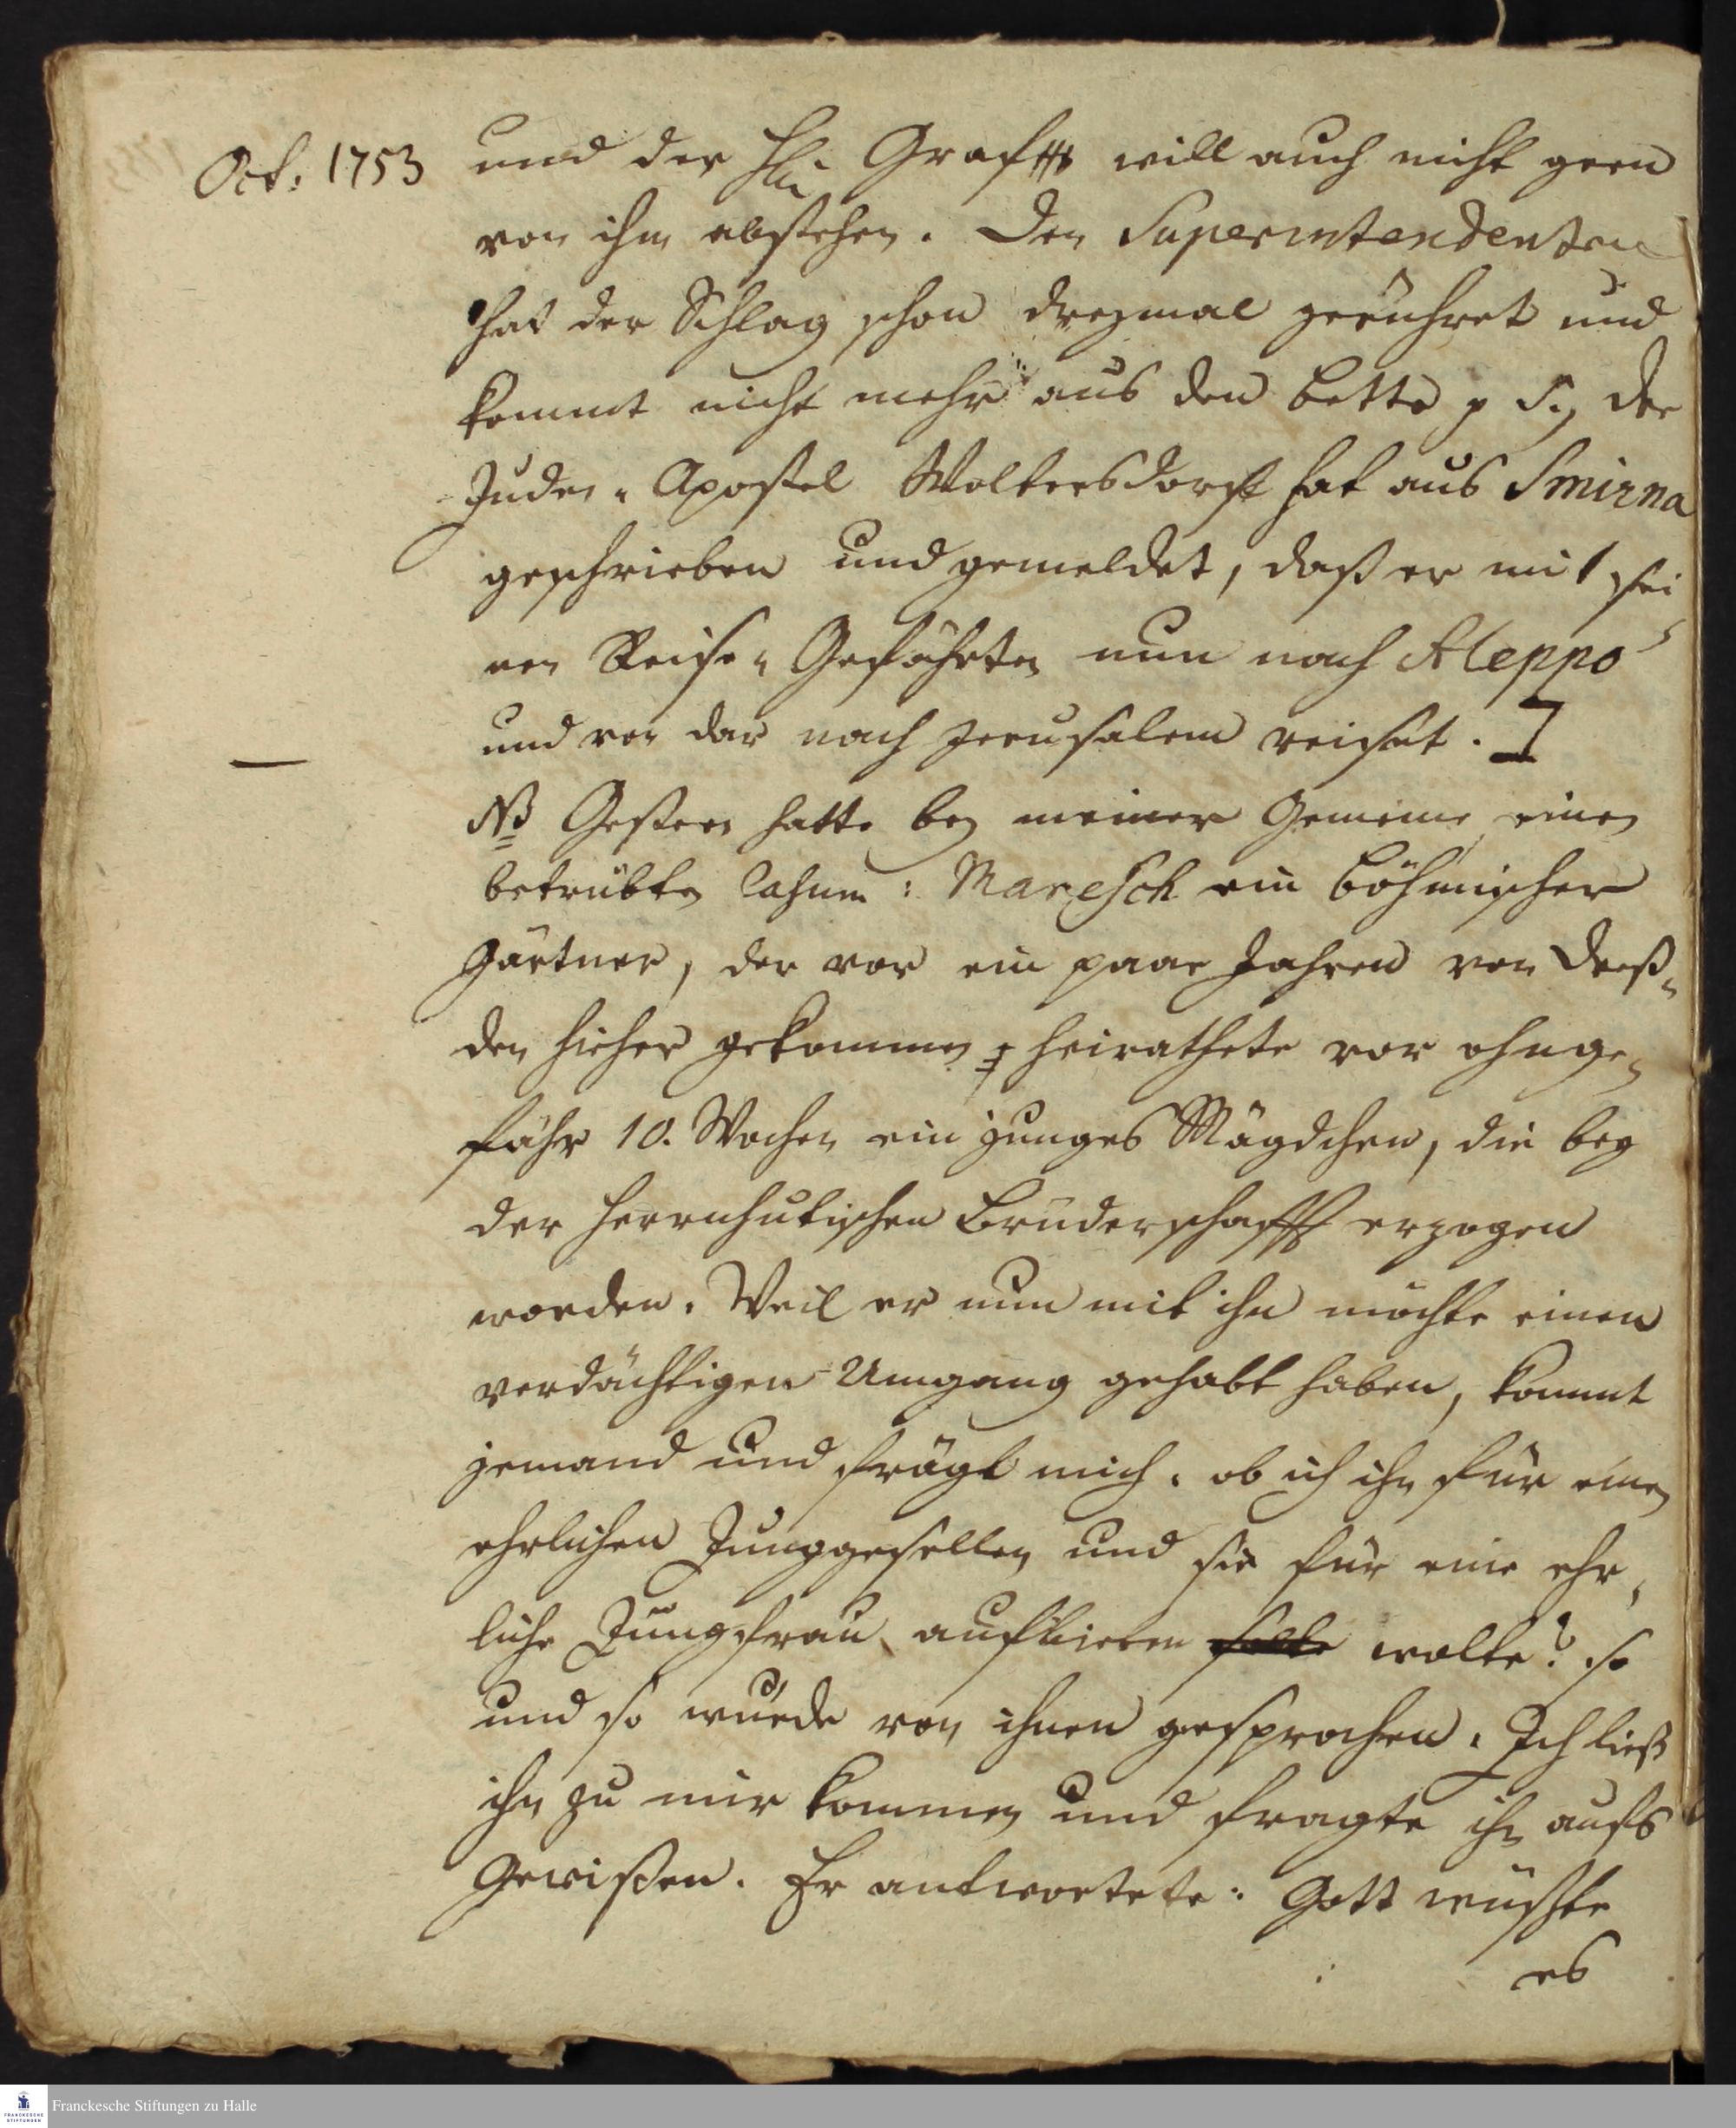 Oct: 1753
und der H. Graf will auch nicht gern
von ihm abstehen. Den Superintendenten
hat der Schlag schon dreymal gerühret und
kommt nicht mehr aus den Bette p der
Juden-Apostel Woltersdorff hat aus Smirna
geschrieben und gemeldet, daß er mit sei
nen Reise-Gefährten nun nach Aleppo
und von dar nach Jerusalem reiset. ]
NB Gestern hatte bey meiner Gemeine einen
betrübten Casum: Maresch ein böhmischer
Gärtner, der vor ein paar Jahren von Dreß-
den hieher gekommen heirathete vor ohnge-
fähr 10. Wochen ein junges Mägdchen, die bey
der Herrnhutischen Bruderschafft erzogen
worden. Weil er nun mit ihr möchte einen
verdächtigen Umgang gehabt haben, kommt
jemand und frägt mich. ob ich ihn für einen
ehrlichen Junggesellen und sie für eine ehr-
liche Jungfrau aufbieten solte wolte? so
und so wurde von ihnen gesprochen. Ich ließ
ihn zu mir kommen und fragte ihn aufs
Gewißen. Er antwortete: Gott wüßte
es
Franckesche Stiftungen zu Halle